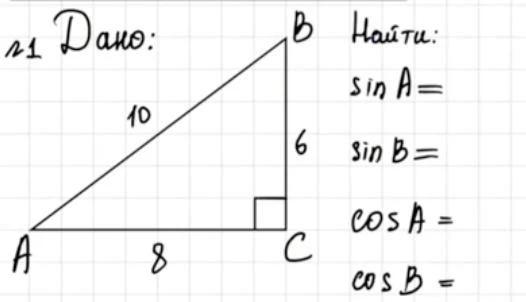 №1 Дано:
B
Найти:
sin A =
10
6
sin B =
cos A =
A
8
C
cos B =